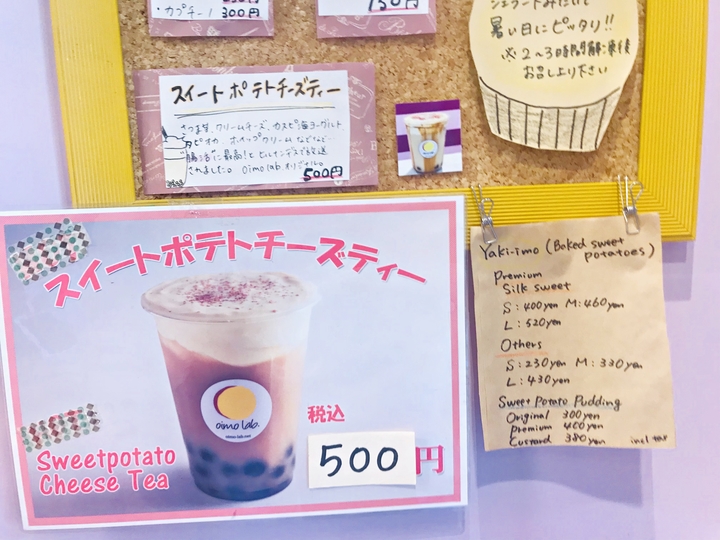 ・カプチーノ 300円
150円
暑い日にピッタリ!!
※2~3時間解凍後
お召し上り下さい
スイートポテトチーズティー
さつま芋、クリームチーズ、カスピ海ヨーグルト、
タピオカ、ホイップクリームなどなど…
"腸活"に最高!とヒルナンデスで放送
されました。oimo labオリジナル。
500円
スイートポテトチーズティー
oimo lab.
税込
500円
Sweetpotato
Cheese Tea
Yaki-imo (Baked sweet
potatoes)
Premium
Silk sweet
S: 400yen M: 460yen
L: 520yen
Others
S: 230yen M: 330yen
L: 430yen
Sweet Potato Pudding
Original 300yen
Premium 400yen
Custard 380yen incl tax